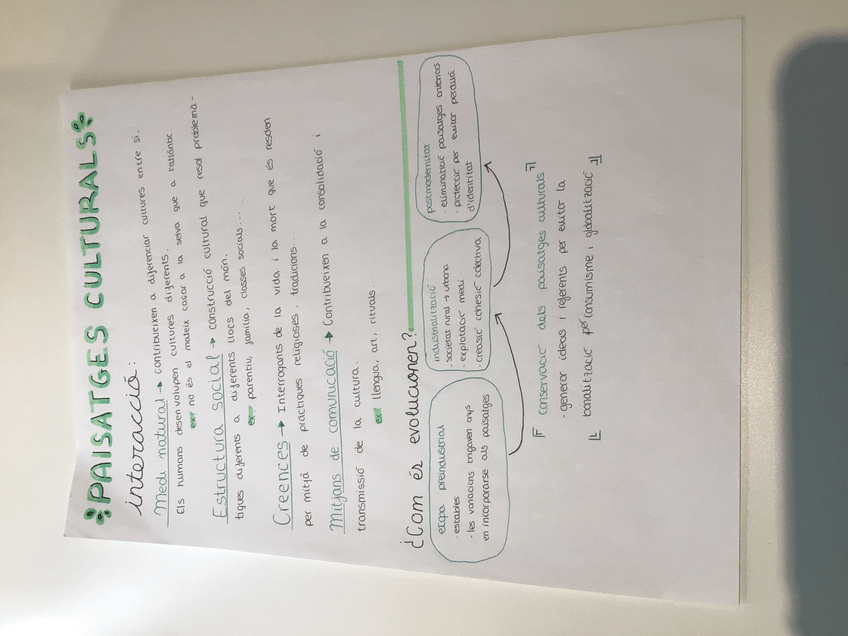 PAISATGES CULTURALS
interacció:
Medi natural → contribueixen a diferenciar cultures entre si.
Els humans desenvolupen cultures diferents.
ex→ no és el mateix caçar a la selva que a l'atlàntic
Estructura social → construcció cultural que resol problemà-
tiques diferents a diferents llocs del món.
ex→ parentiu, família, classes socials...
Creences → Interrogants de la vida i la mort que és resolen
per mitjà de pràctiques religioses, tradicions.
Mitjans de comunicació → Contribueixen a la consolidació i
transmissió de la cultura.
ex→ llengua, art, rituals...
¿Com és evolucionen?
etapa preindustrial
- estables
- les variacions trigaven anys
en incorporarse als paisatges
industrialització
- societat rural → urbana
- explotació medi
- creasió cohesió colectiva
postmodernitat
- eliminatició paisatges anteriors
- protecció per evitar perduá
d'identitat
conservació dels paisatges culturals
- generar idees i referents per evitar la
banalització per consumisme i globalització